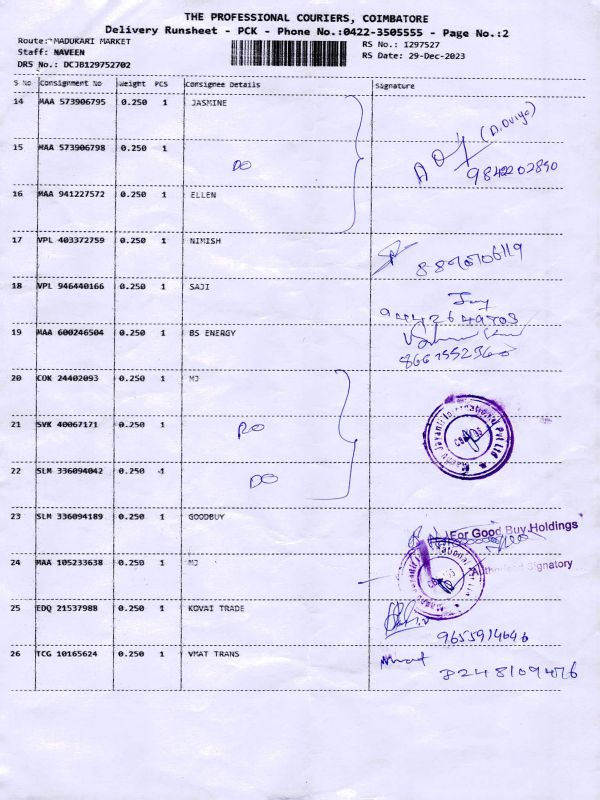 THE PROFESSIONAL COURIERS, COIMBATORE
Delivery Runsheet - PCK - Phone No.:0422-3505555 - Page No.:2
Route: MADUKARI MARKET
Staff: NAVEEN
DRS No.: DCJB129752702
RS No.: 1297527
RS Date: 29-Dec-2023
S No Consignment No Weight PCS Consignee Details Signature
14 MAA 573906795 0.250 1 JASMINE
15 MAA 573906798 0.250 1 DO
9842202890
16 MAA 941227572 0.250 1 ELLEN
17 VPL 403372759 0.250 1 NIMISH
18 VPL 946440166 0.250 1 SAJI
19 MAA 600246504 0.250 1 BS ENERGY
20 COK 24402093 0.250 1 MJ
21 SVK 40067171 0.250 1 DO
22 SLM 336094042 0.250 1 DO
23 SLM 336094189 0.250 1 GOODBUY
For Good Buy Holdings
24 MAA 105233638 0.250 1 MJ
Authorised Signatory
25 EDQ 21537988 0.250 1 KOVAI TRADE
9655914646
26 TCG 10165624 0.250 1 VMAT TRANS